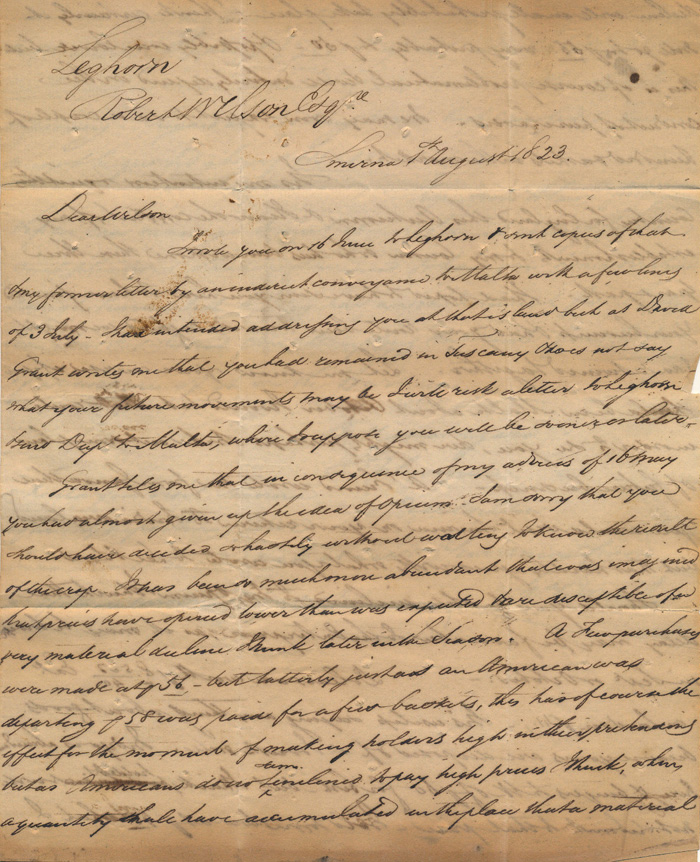 Leghorn
Robert Wilson Esqre
Smirna 1st August 1823.
Dear Wilson
I wrote you on 16 June to Leghorn & sent copies of that
& my former letter by an indirect conveyance to Malta with a few lines
of 3 July - I had intended addressing you at that island but as David
Grant writes me that you had remained in Tuscany & does not say
what your future movements may be I will risk a letter to Leghorn
to Malta, where I suppose you will be sooner or later -
Grant tells me that in consequence of my address of 16 May
you had almost given up the idea of Opium. I am sorry that you
should have decided so hastily without waiting to know the result
of the crop. It has been so much more abundant that was imagined
that prices have opened lower than was expected & are susceptible of a
very material decline I think later in the season. A few purchases
were made at p 56 - but latterly just as an American was
departing p 58 was paid for a few baskets, this has of course the
effect for the moment of making holders high in their pretensions
but as Americans do not seem inclined to pay high prices I think, when
a quantity shall have accumulated in the place that a material